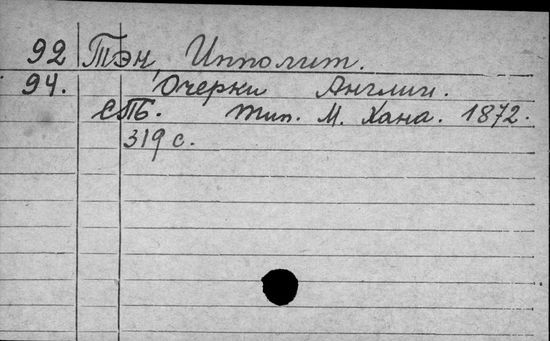 92 Тэн, Ипполит.
94. Очерки Англии.
СПБ. Тип. М. Хана. 1872.
319 с.